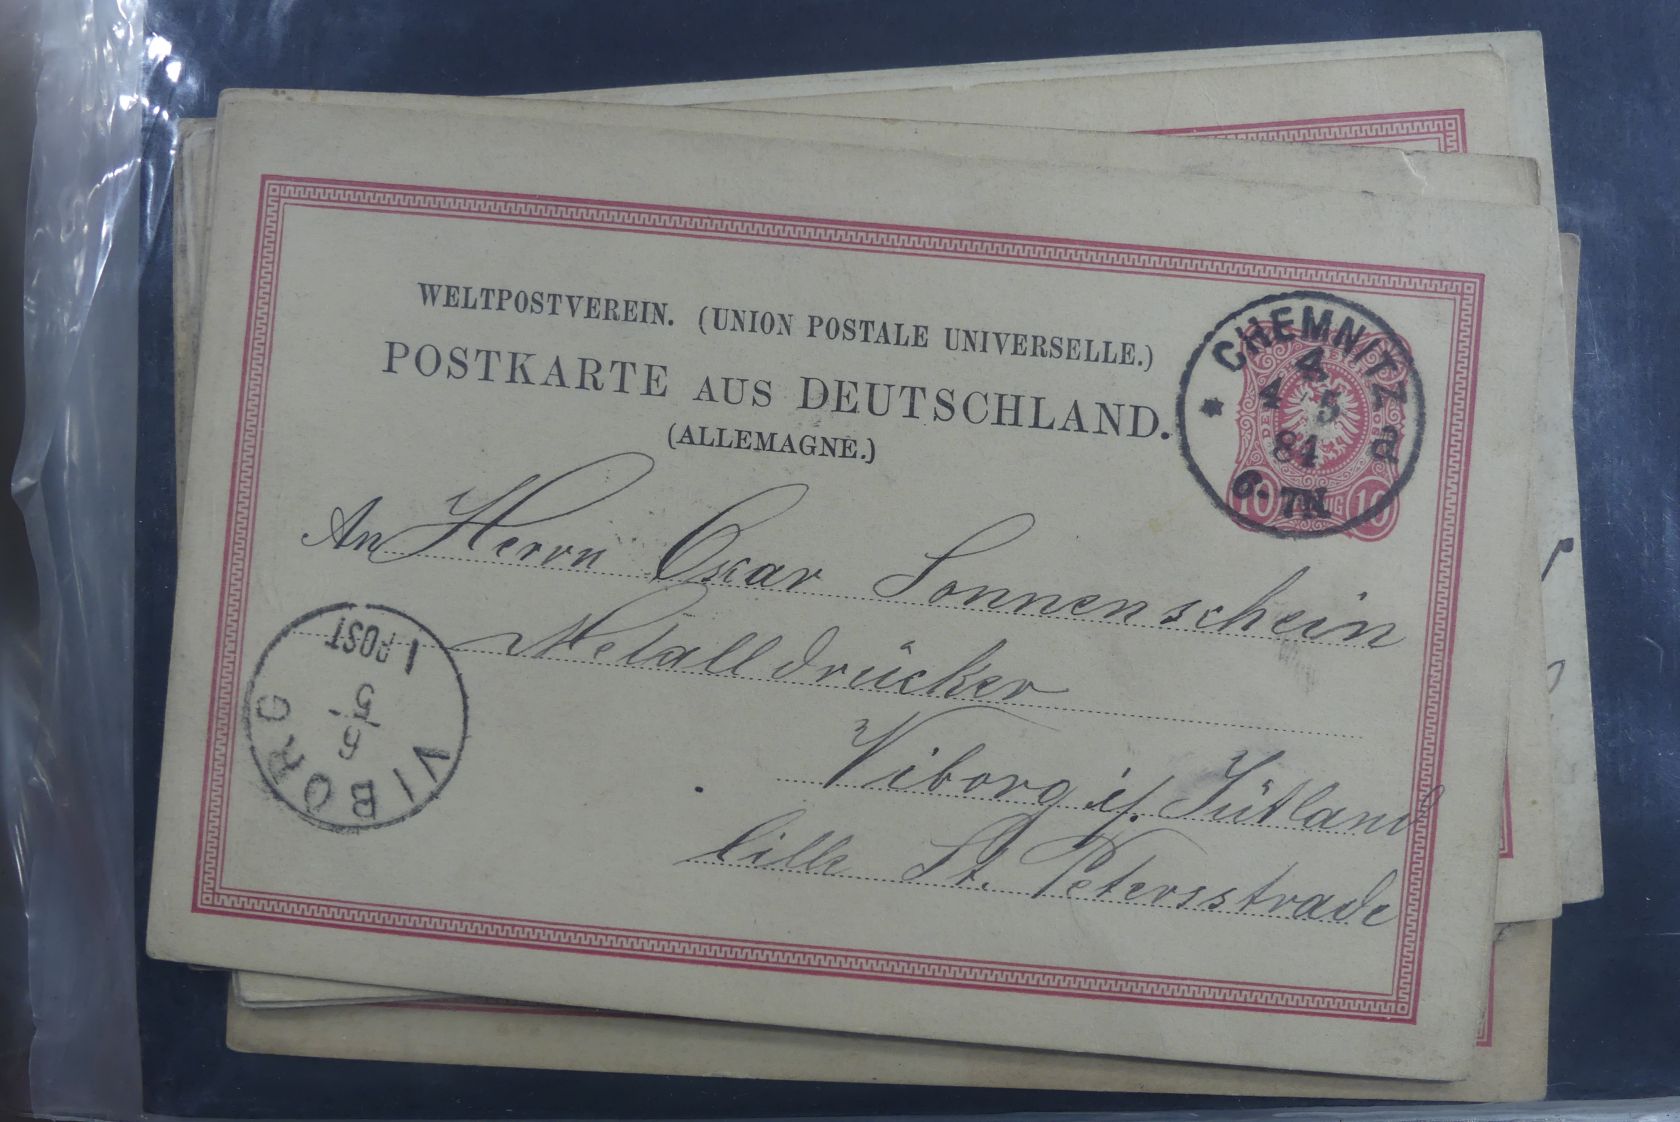 WELTPOSTVEREIN. (UNION POSTALE UNIVERSELLE.)
POSTKARTE AUS DEUTSCHLAND.
(ALLEMAGNE.)
CHEMNITZ
4 5
84
6-7N
a
10 10
An Herrn Oscar Sonnenschein
Metalldrücker
Viborg i/. Jütland
lille St. Petersstrade
VIBORG
6
5
1 POST